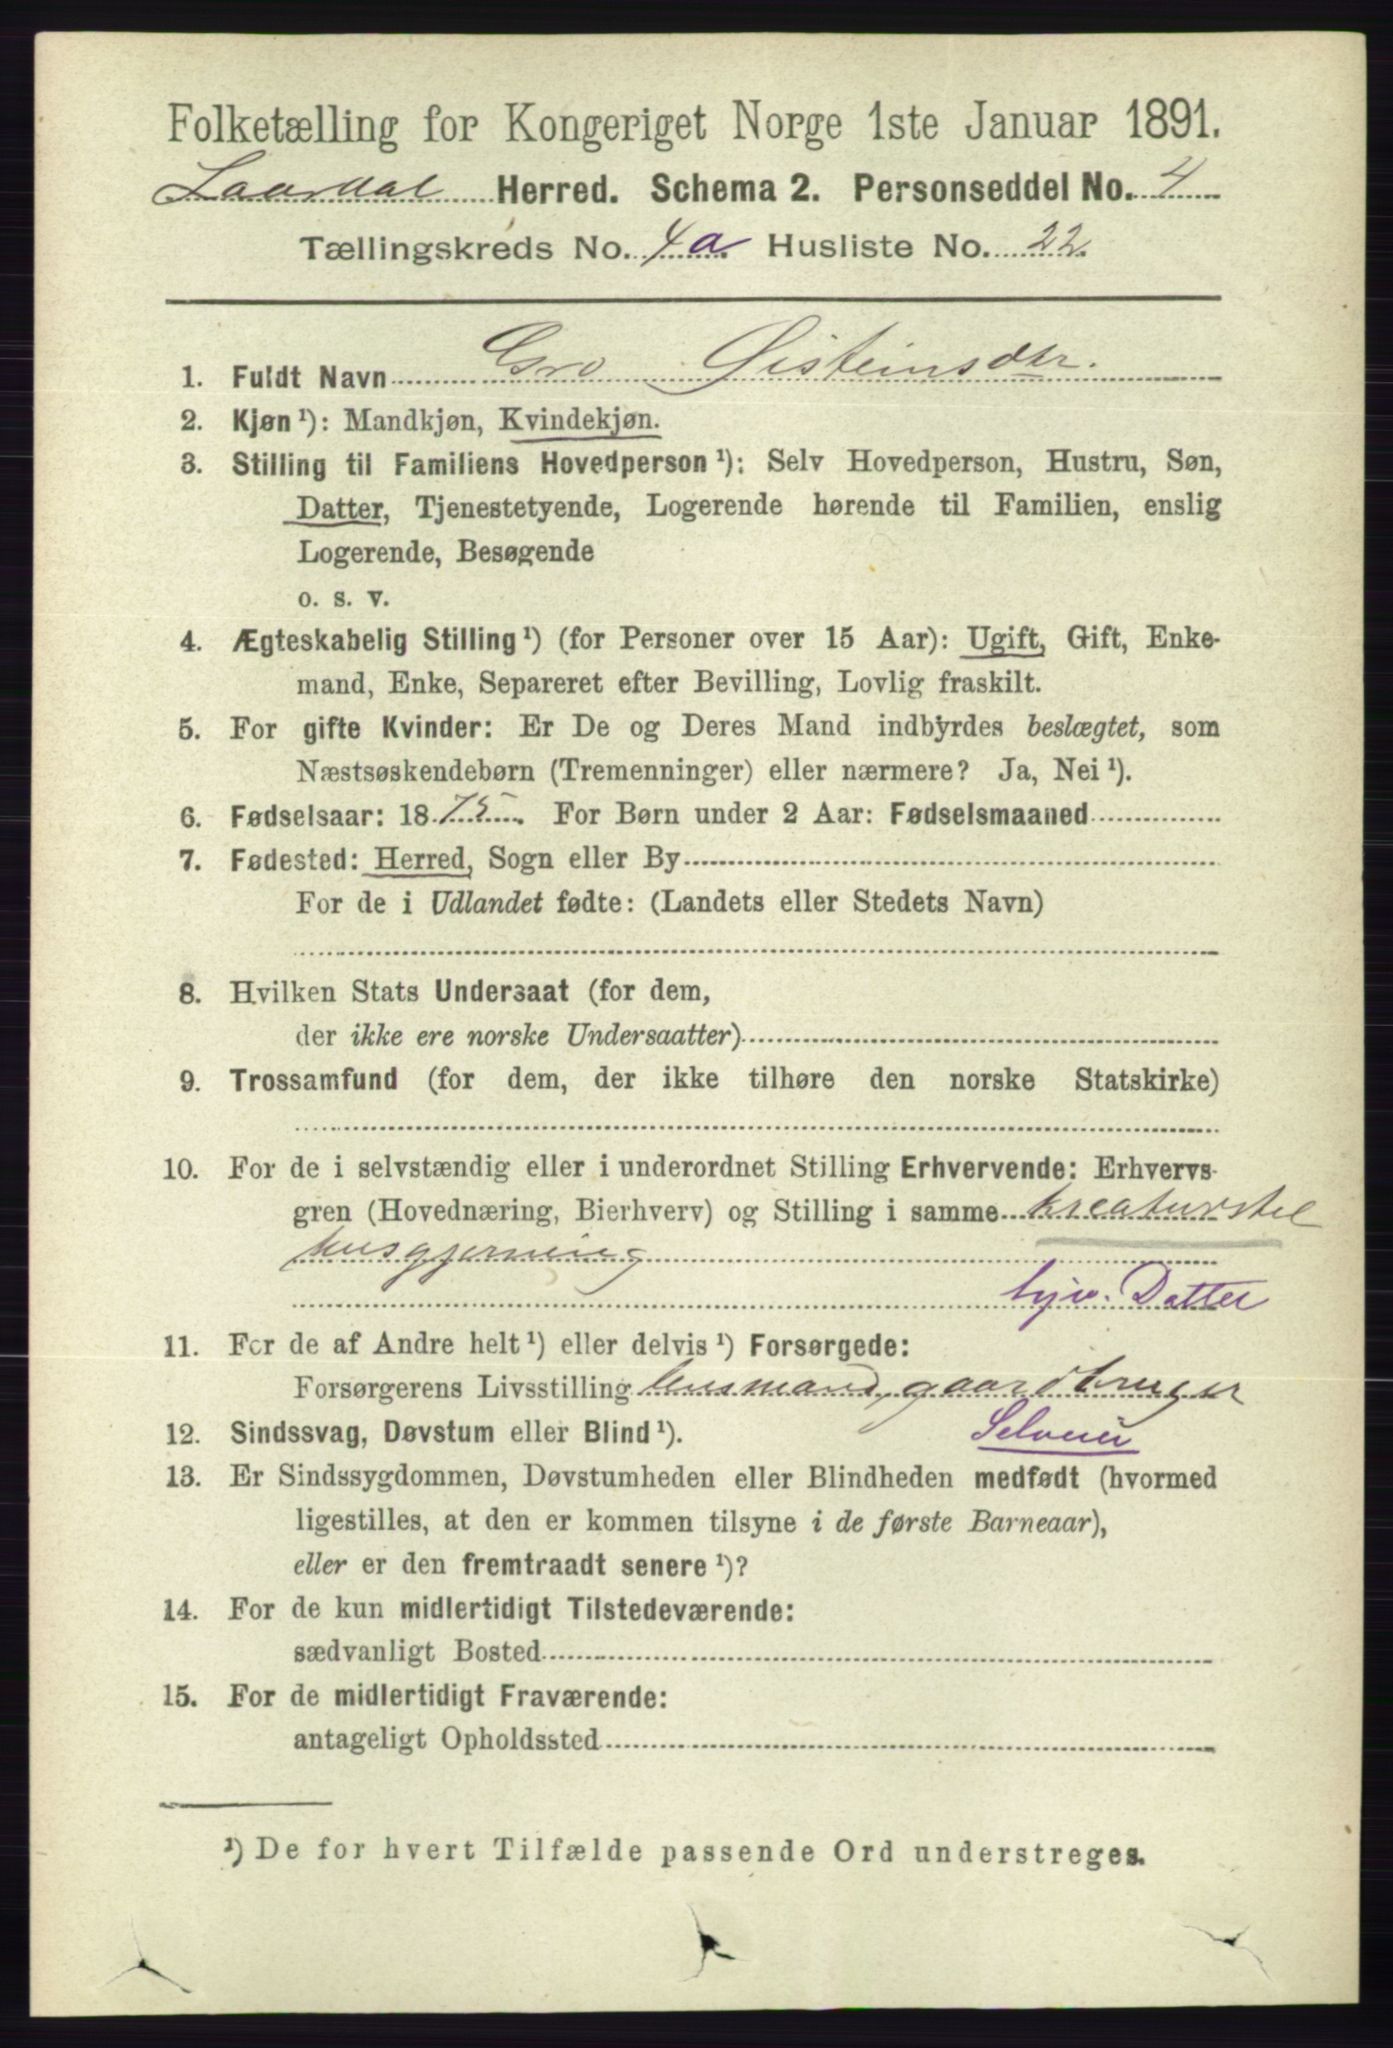 Folketælling for Kongeriget Norge 1ste Januar 1891.
Laardal Herred. Schema 2. Personseddel No. 4
Tællingskreds No. 4a Husliste No. 22.
1. Fuldt Navn Gro Øisteinsdtr.
2. Kjøn ¹): Mandkjøn, Kvindekjøn.
3. Stilling til Familiens Hovedperson ¹): Selv Hovedperson, Hustru, Søn,
Datter, Tjenestetyende, Logerende hørende til Familien, enslig
Logerende, Besøgende
o. s. v.
4. Ægteskabelig Stilling ¹) (for Personer over 15 Aar): Ugift, Gift, Enke-
mand, Enke, Separeret efter Bevilling, Lovlig fraskilt.
5. For gifte Kvinder: Er De og Deres Mand indbyrdes beslægtet, som
Næstsøskendebørn (Tremenninger) eller nærmere? Ja, Nei ¹).
6. Fødselsaar: 1875. For Børn under 2 Aar: Fødselsmaaned
7. Fødested: Herred, Sogn eller By
For de i Udlandet fødte: (Landets eller Stedets Navn)
8. Hvilken Stats Undersaat (for dem,
der ikke ere norske Undersaatter)
9. Trossamfund (for dem, der ikke tilhøre den norske Statskirke)
10. For de i selvstændig eller i underordnet Stilling Erhvervende: Erhvervs-
gren (Hovednæring, Bierhverv) og Stilling i samme kreaturstel
husgjerning
hjv. Datter
11. For de af Andre helt ¹) eller delvis ¹) Forsørgede:
Forsørgerens Livsstilling husmand, gaardbruger
Selveier
12. Sindssvag, Døvstum eller Blind ¹).
13. Er Sindssygdommen, Døvstumheden eller Blindheden medfødt (hvormed
ligestilles, at den er kommen tilsyne i de første Barneaar),
eller er den fremtraadt senere ¹)?
14. For de kun midlertidigt Tilstedeværende:
sædvanligt Bosted
15. For de midlertidigt Fraværende:
antageligt Opholdssted
¹) De for hvert Tilfælde passende Ord understreges.